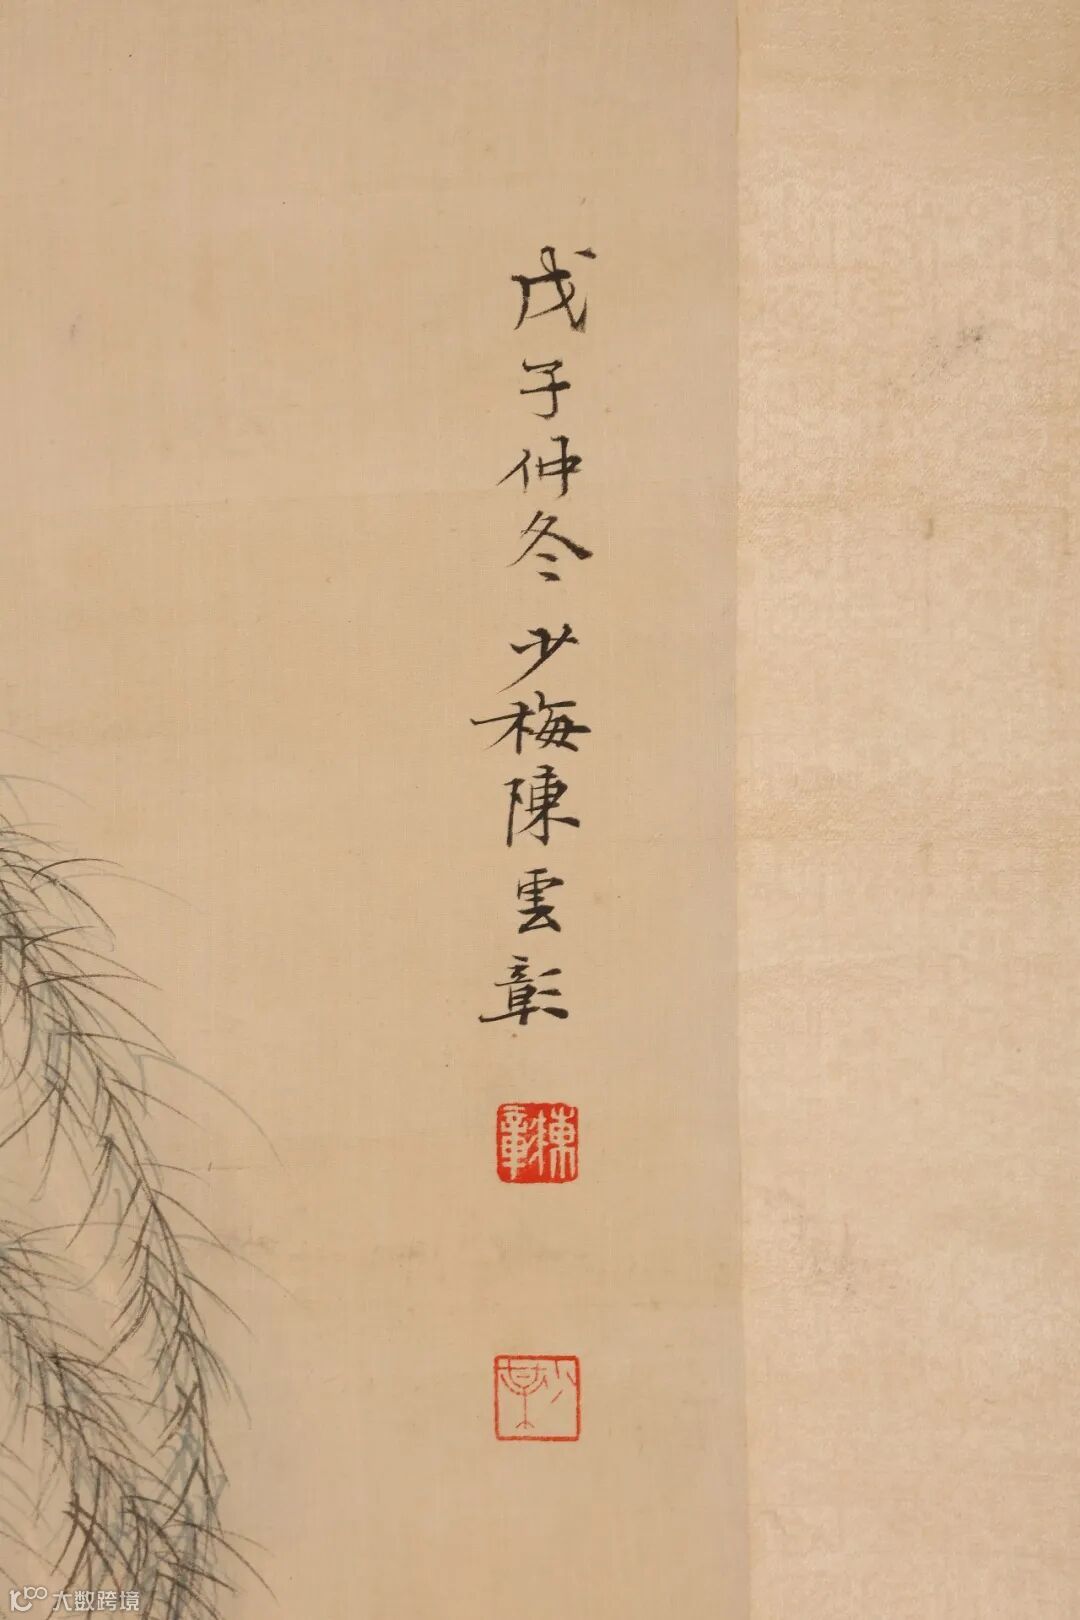 戊子仲冬少梅陳雲彰
大数跨境